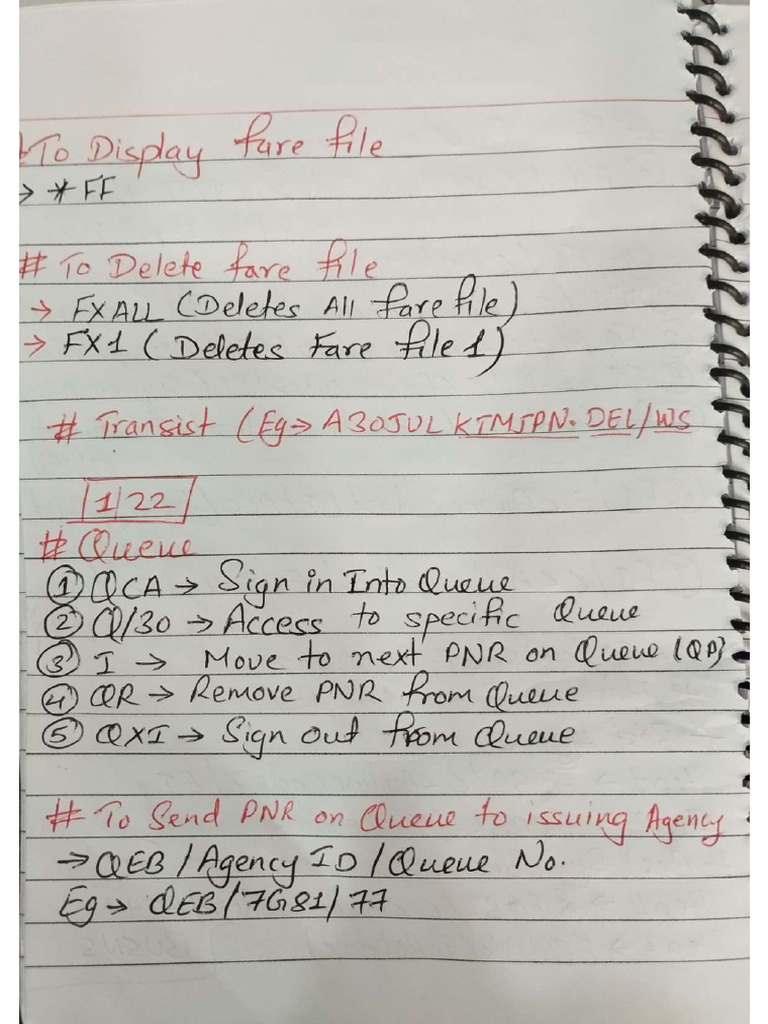 To Display fare file
→ *FF
# To Delete fare file
→ FXALL (Deletes All fare file)
→ FX1 (Deletes Fare file 1)
# Transist (Eg→ A30JUL KTMJPN. DEL/WS
1/22
# Queue
① QCA → Sign in Into Queue
② Q/30 → Access to specific Queue
③ I → Move to next PNR on Queue (QP)
④ QR → Remove PNR from Queue
⑤ QXI → Sign out from Queue
# To Send PNR on Queue to issuing Agency
→ QEB / Agency ID / Queue No.
Eg → QEB/7G81/77